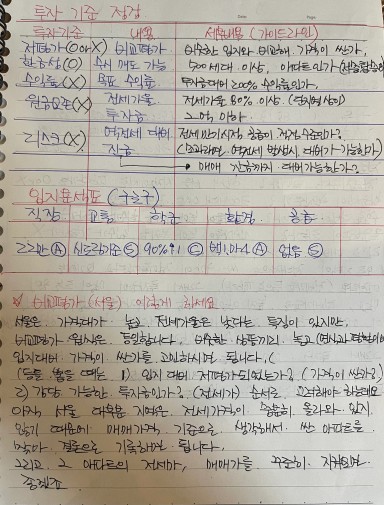 투자 기준 정정
투자기준 내용 세부내용 (가이드라인)
저평가(O or X) 비교평가 비슷한 입지와 비교해 가격이 싼가,
환금성(O) 수시 매도 가능 500세대 이상, 아파트인가
수익률(X) 목표 수익률 투자금대비 200% 수익률인가,
원금보존(X) 전세가율 전세가율 80% 이상.
투자금 2억 이하
리스크(X) 역전세 대비 전세만기시점, 공급이 적정 수준인가?
자금 역전세 발생시, 대비가 가능한가)
매매 잔금까지 대비가능한가?
입지분석표 (구로구)
직장 교통 학군 환경 공급
22만 Ⓐ 신도림기준 Ⓢ 90%↑1 Ⓒ Ⓐ 없음 Ⓢ
※ 비교평가 (서울) 이렇게 하세요
서울은 가격대가 높고 전세가율은 낮다는 특징이 있지만,
비교평가 원칙은 동일합니다, 비슷한 상품끼리 놓고
입지대비 가격이 싼가를 고민하시면 됩니다,
1) 입지 대비 저평가되었는가? (가격이 싼가?)
2) 감당 가능한 투자금인가? (전세가) 순서로 고려해야 하는데요
아직 서울 대부분 지역은 전세가격이 충분히 올라와 있지
않기 때문에 매매가격 기준으로 생각해서 싼 아파트를
찾아 결론으로 기록하면 됩니다,
그리고 그 아파트의 전세가, 매매가를 꾸준히 지켜보면